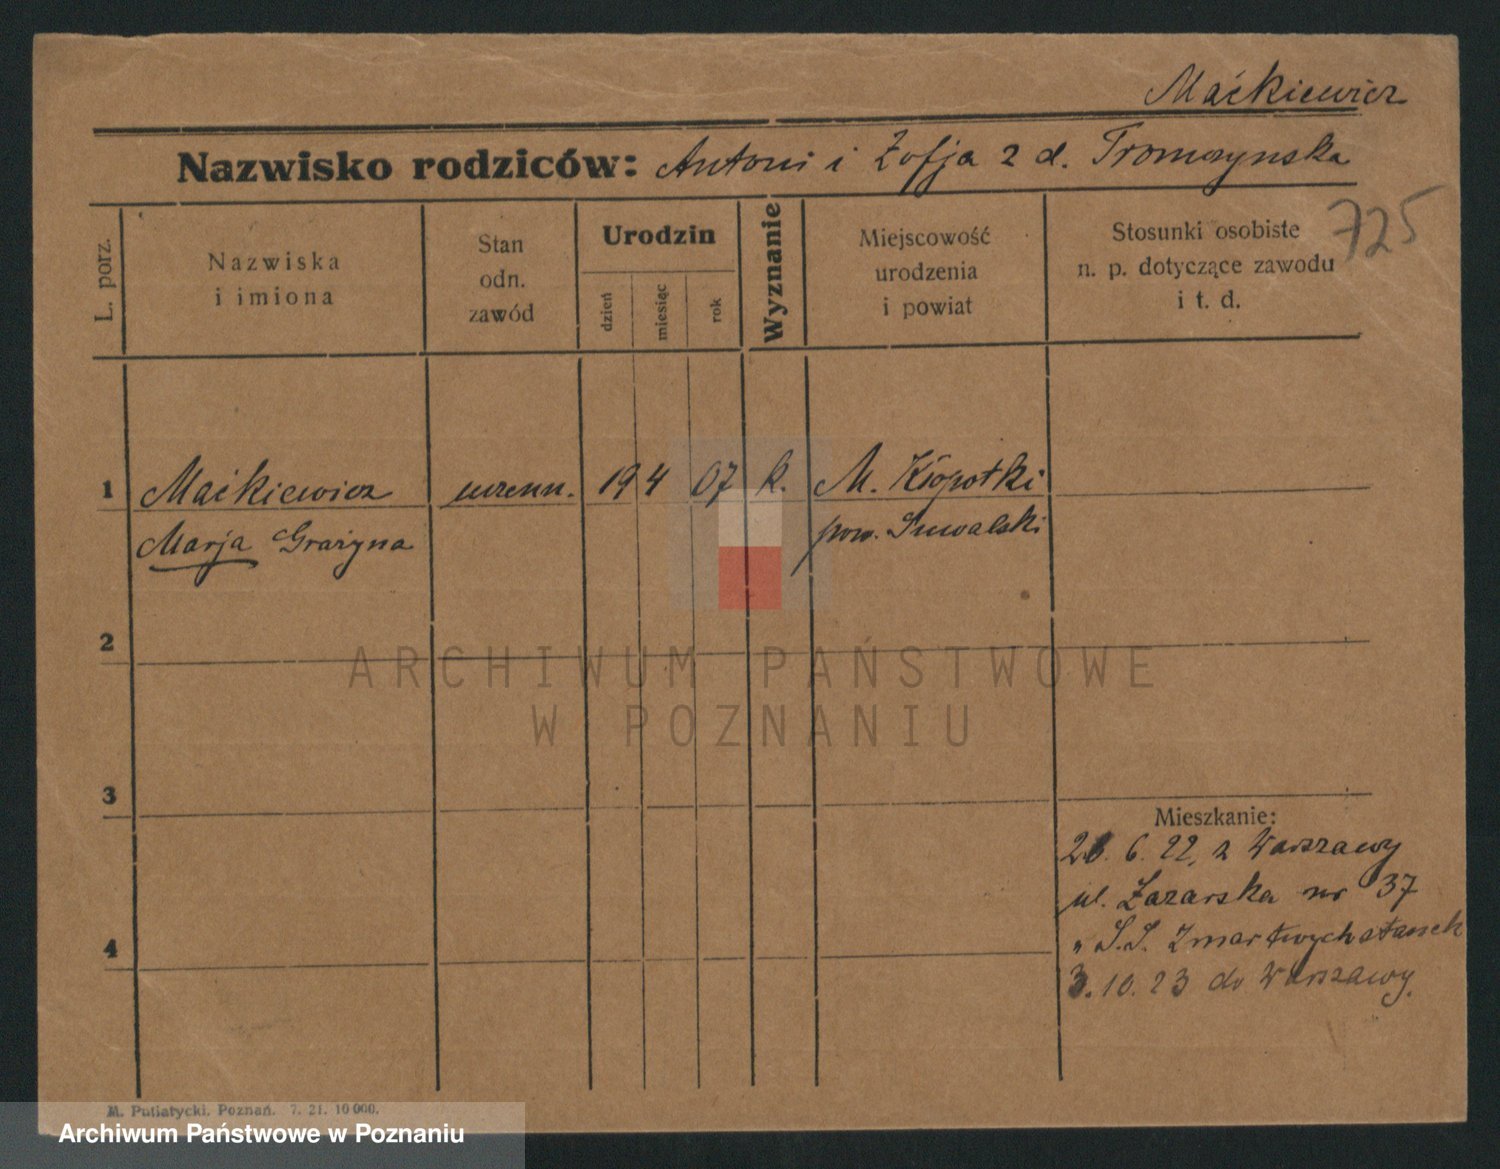 Maćkiewicz
Nazwisko rodziców: Antoni i Zofja z d. Tromszynska
725
L. porz.
Nazwiska
i imiona
Stan
odn.
zawód
Urodzin
dzień
miesiąc
rok
Wyznanie
Miejscowość
urodzenia
i powiat
Stosunki osobiste
n. p. dotyczące zawodu
i t. d.
1 Maćkiewicz uczenn. 19 4 07 k. M. Kłopotki
Marja Grażyna pow. Suwalski
2
ARCHIWUM PAŃSTWOWE
W POZNANIU
3
Mieszkanie:
6. 22, z Warszawy
ul. Łazarska nr 37
4
" S.S. Zmartwychstanek
3.10.23 do Warszawy.
M. Putiatycki, Poznań. 7. 21. 10 000.
Archiwum Państwowe w Poznaniu